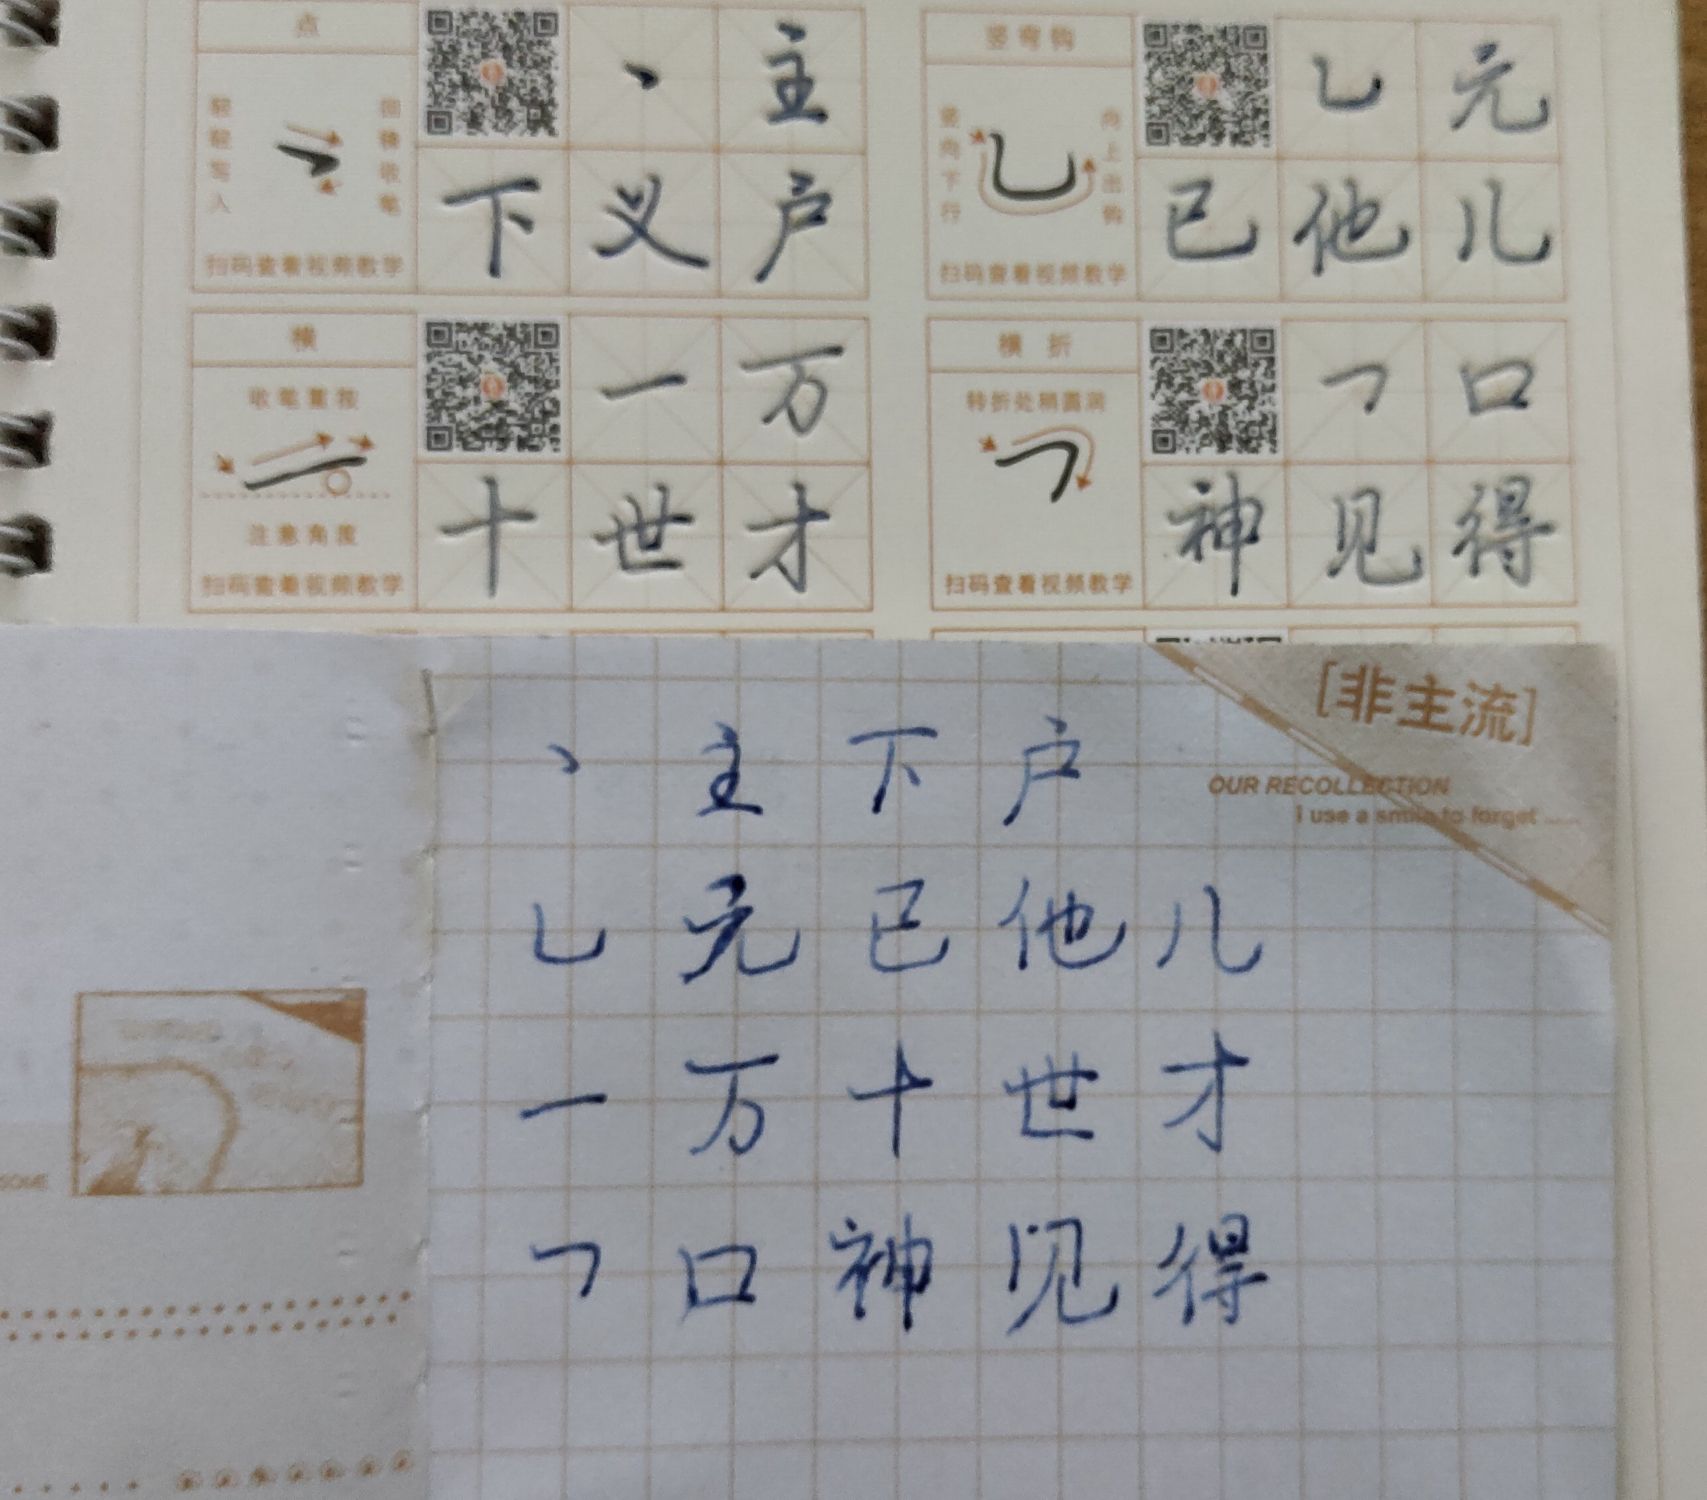 点
丶 主
轻轻写入
回锋收笔
下 义 户
扫码查看视频教学
竖弯钩
乚 元
竖向下行
向上出钩
已 他 儿
扫码查看视频教学
横
收笔重按
一 万
注意角度
十 世 才
扫码查看视频教学
横折
转折处稍圆润
㇕ 口
神 见 得
扫码查看视频教学
[非主流]
OUR RECOLLECTION
I use a smile to forget ......
丶 主 下 户
乚 元 已 他 儿
一 万 十 世 才
㇕ 口 神 见 得